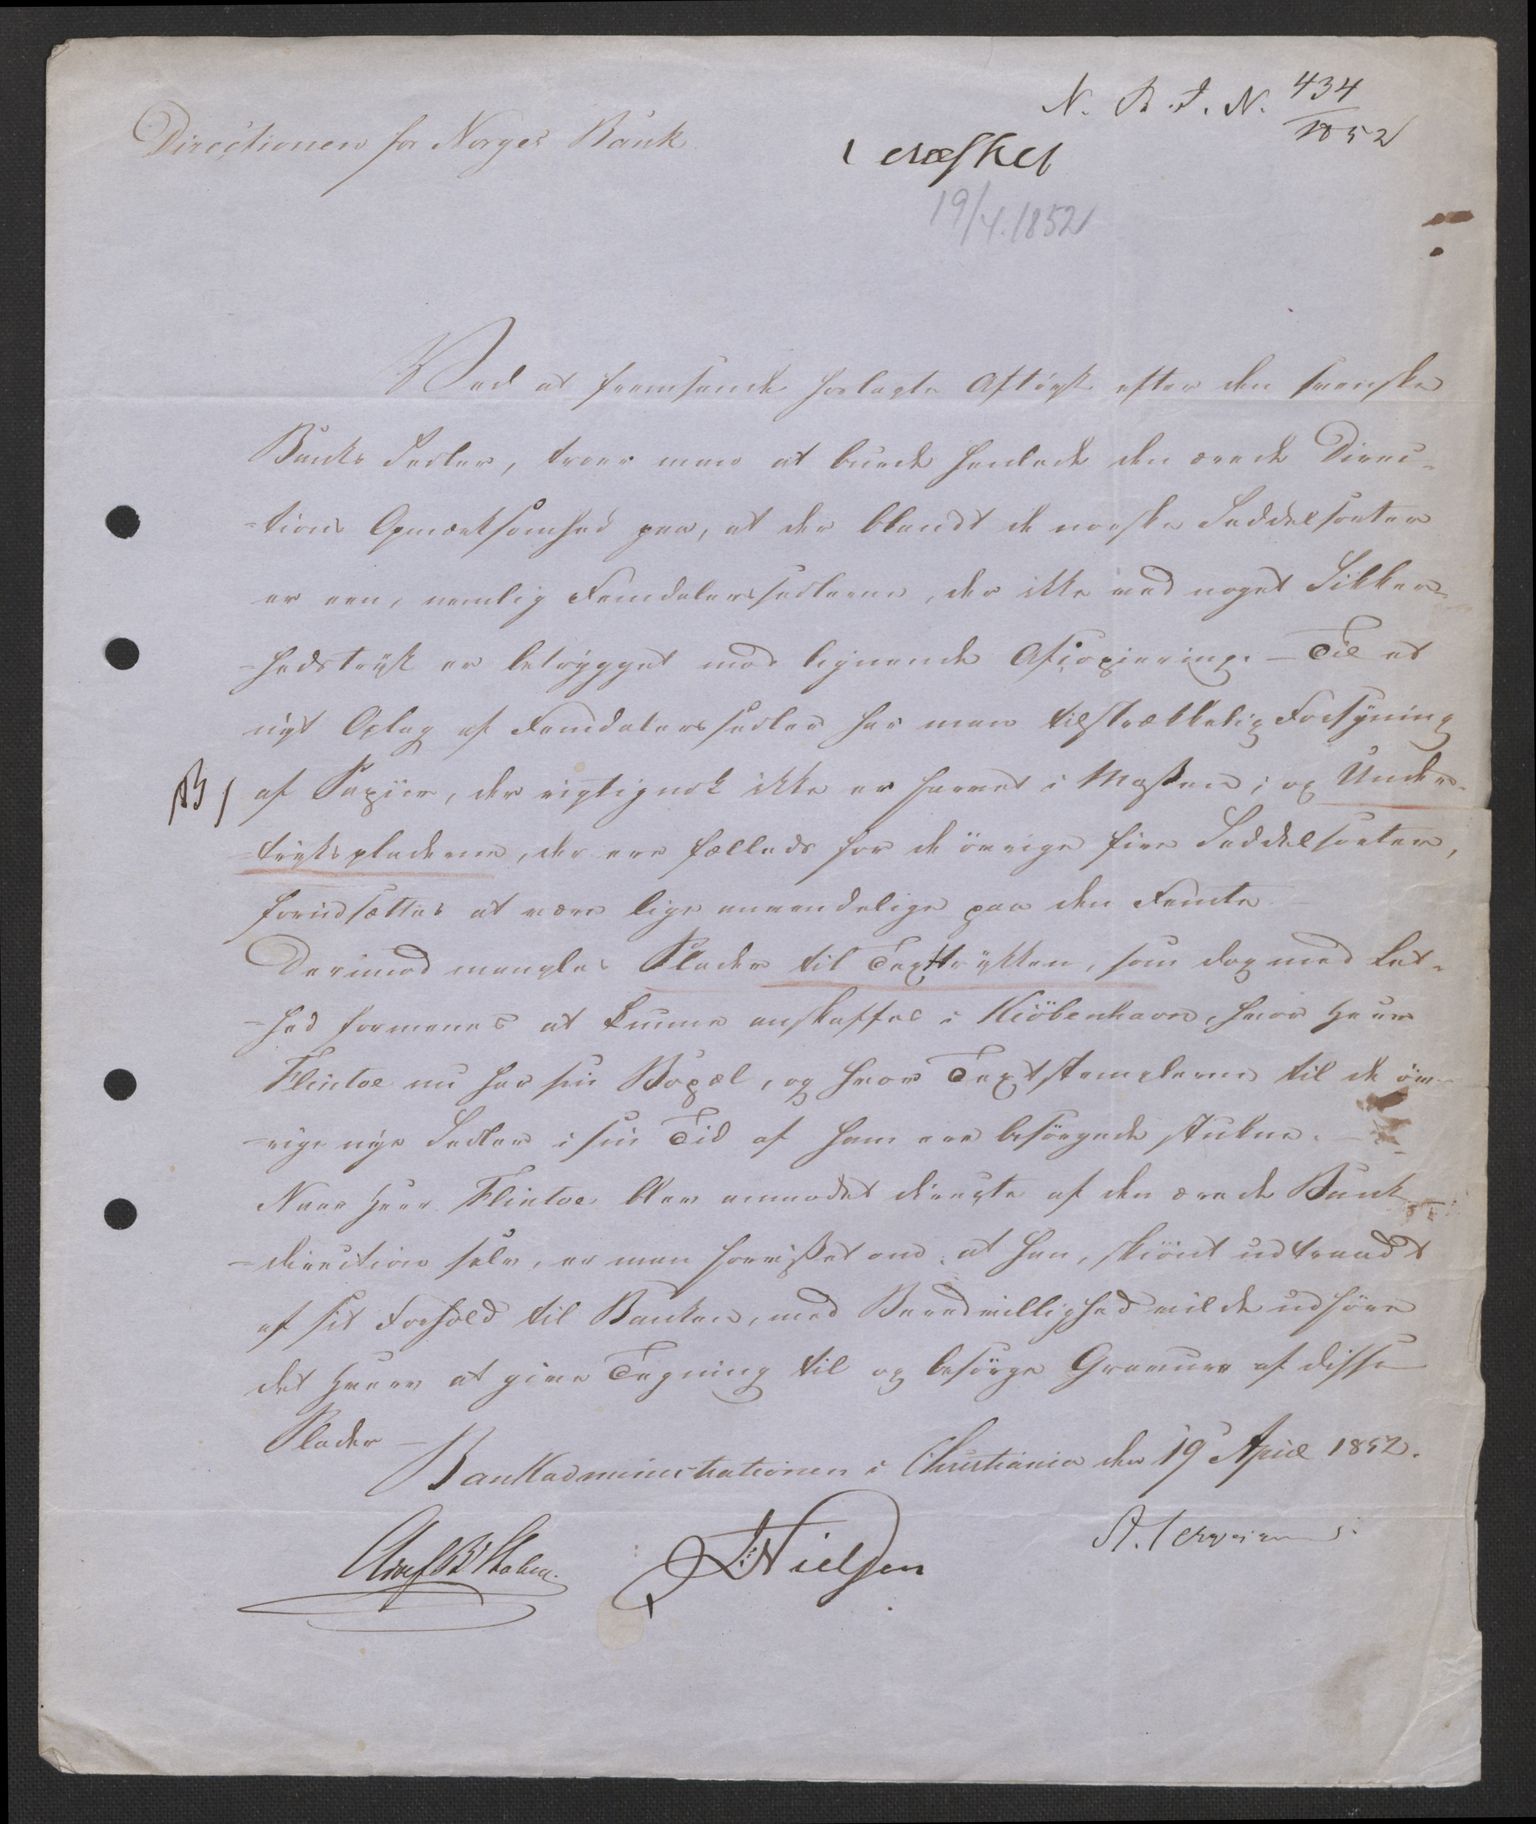 N. B. J. N. 434
1852
Directionen for Norges Bank
19/4. 1852
Ved at fremsende forlagte Aftryk efter den svenske
Banks Sedler, troer man at burde henlede den ærede Direc-
-tions Opmærksomhed paa, at der blandt de norske Seddelsorter
er een, nemlig Femdalerssedlerne, der ikke ved noget Sikker-
-hedstryk er betrygget mod lignende Afcopiering. – Til et
nyt Oplag af Femdalerssedler har man tilstrækkelig Forsyning
af Papiir, der rigtignok ikke er farvet i Massen; og Under-
-tryks pladerne, der ere fælleds for de övrige fire Seddelsorter,
forudsættes at være lige anvendelige paa den Femte. –
Derimod mangles Plader til Texttrykken, som dog med Let-
-hed formenes at kunne anskaffes i Kiöbenhavn, hvor Herr
Flintoe nu har sin Bopæl, og hvor Textstemplerne til de öv-
-rige nye Sedler i sin Tid af ham ere besörgede stukne. –
Naar Herr Flintoe blev anmodet directe af den ærede Bank-
-direction selv, er man forvisset om, at han, skiönt udtraadt
af sit Forhold til Banken, med Beredvillighed vilde udföre
det Hverv at give Tegning til og besörge Gravuren af disse
Plader –
Bankadministrationen i Christiania den 19 April 1852.
J. Nielsen